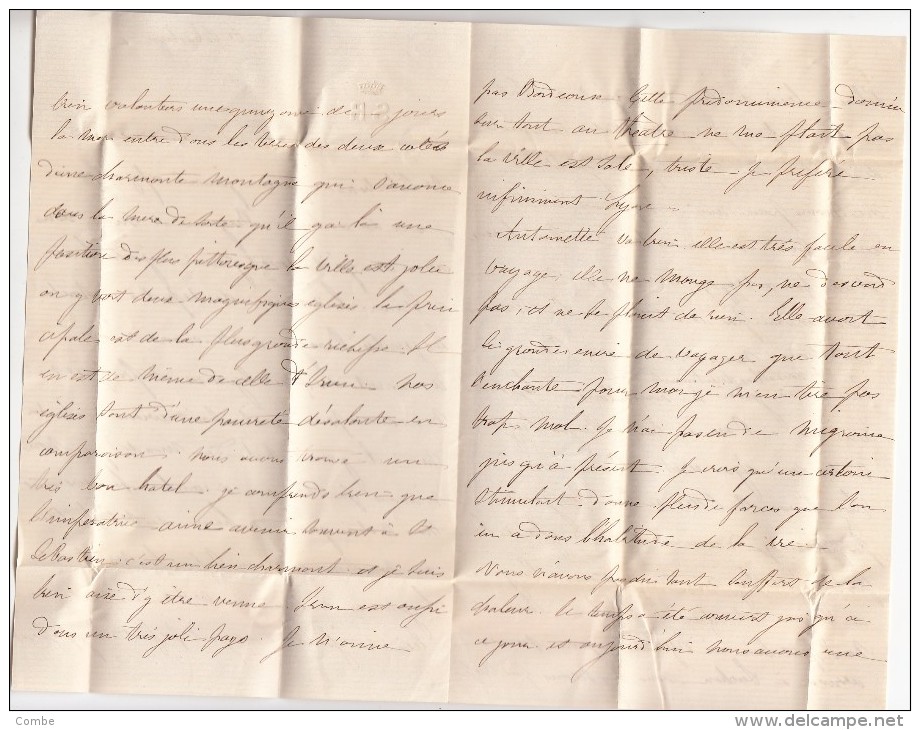 bien volontiers une quinzaine de jours
la mer entre dans les terres des deux cotés
d'une charmante montagne qui s'avance
dans la mer de sorte qu'il y a là une
position des plus pittoresque la ville est jolie
on y voit deux magnifiques églises la prin
cipale est de la plus grande richesse. Il
en est de même de celle d'Irun nos
églises sont d'une pauvreté désolante en
comparaison. nous avons trouvé un
très bon hotel. je comprends bien que
l'impératrice aime avenir souvent à St
Sebastien. c'est un lieu charmant et je suis
bien aise d'y être venue. Irun est aussi
dans un très joli pays. Je n'aime
pas Bordeaux. Cette prédominence donnée
sur tout au théatre ne me plait pas
la ville est sale, triste je préfére
infiniment Lyon.
Antoinette va bien, elle est très facile en
voyage, elle ne mange pas, ne dort
pas, et ne se plaint de rien. Elle avait
si grande envie de voyager que tout
l'enchante. pour moi je m'en tire pas
trop mal. Je n'ai pas eu de migraine
jusqu'à présent. Je crois qu'une certaine
stimulant donne plus de forces que l'on
en a dans l'habitude de la vie.
Nous n'avons pas du tout souffert de la
chaleur. le temps a été couvert jusqu'à
ce jour et aujourd'hui nous avons une
Combe
www.delcampe.net